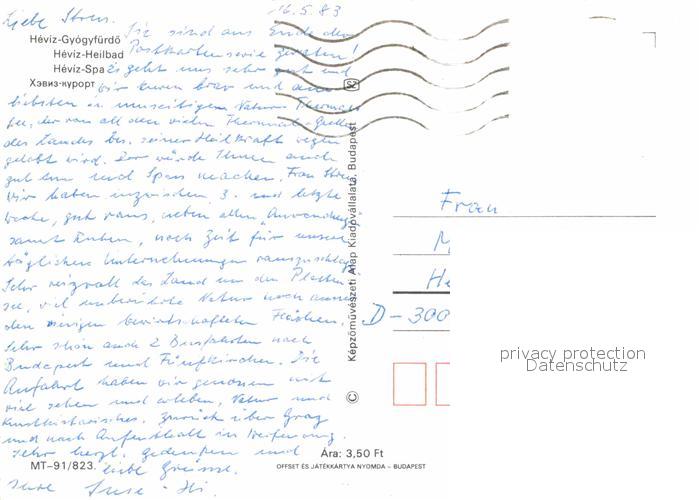 16.5.83
Liebe
Hévíz-Gyógyfürdő
Hévíz-Heilbad
Hévíz-Spa
Хэвиз-курорт
Sie sind aus Ende der
Postkartenserie
Es geht uns sehr gut und
wir kuren brav und am
liebsten im Natur Thermal
see, der von all den vielen Thermal-Quellen
des Landes bes. seiner Heilkraft wegen
gelobt wird. Der würde Ihnen auch
gut tun und Spass machen. Frau
Wir haben inzwischen, 3. und letzte
Woche, gut raus, neben allen Anwendungen
samt Ruhen, noch Zeit für unsere
täglichen Unternehmungen
Sehr reizvoll das Land um den Platten
see, viel unberührte Natur
den riesigen bewirtschafteten Flächen.
Sehr schön auch 2 Busfahrten nach
Budapest und Fünfkirchen. Die
Anfahrt haben wir genossen mit
viel sehen und erleben, Natur und
Kunsthistorisches. Zurück über Graz
und nach Aufenthalt in
sehr herzl. gedenken und
liebe Grüsse
MT-91/823.
Képzőművészeti Alap Kiadóvállalata, Budapest
©
SZ
Frau
M
He
D-300
privacy protection
Datenschutz
Ára: 3,50 Ft
OFFSET ÉS JÁTÉKKÁRTYA NYOMDA – BUDAPEST